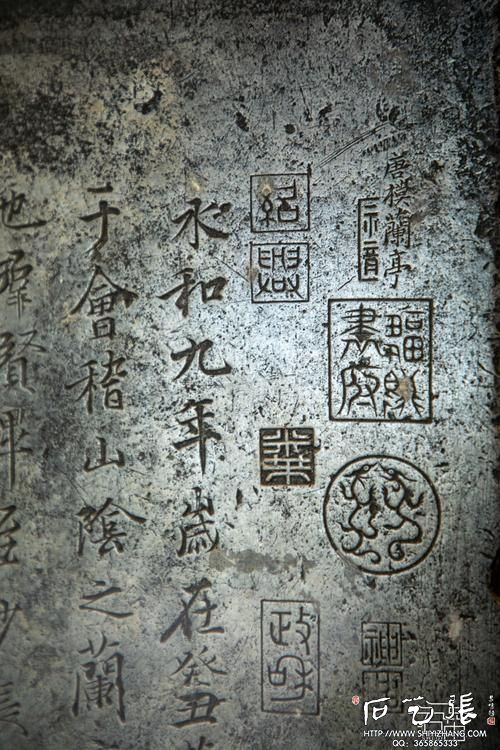 唐模蘭亭
紹興
政和
神品
永和九年歲在癸丑
于會稽山陰之蘭
也羣賢畢至少長
HTTP://WWW.SHIYIZHANG.COM
QQ: 365865333